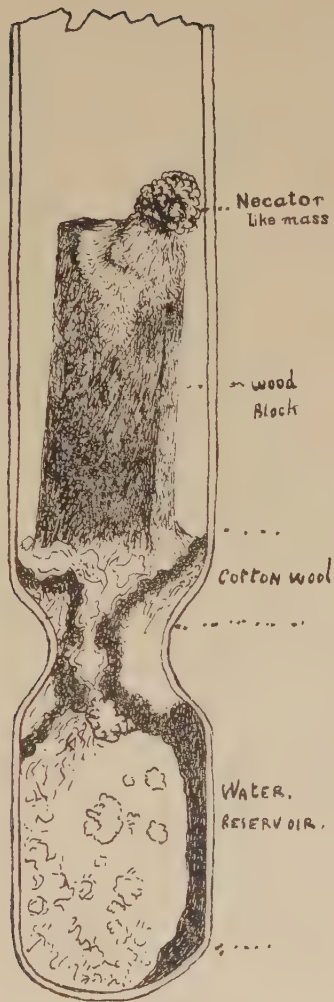 Necator
like mass
wood
Block
COTTON WOOL
WATER.
RESERVOIR.